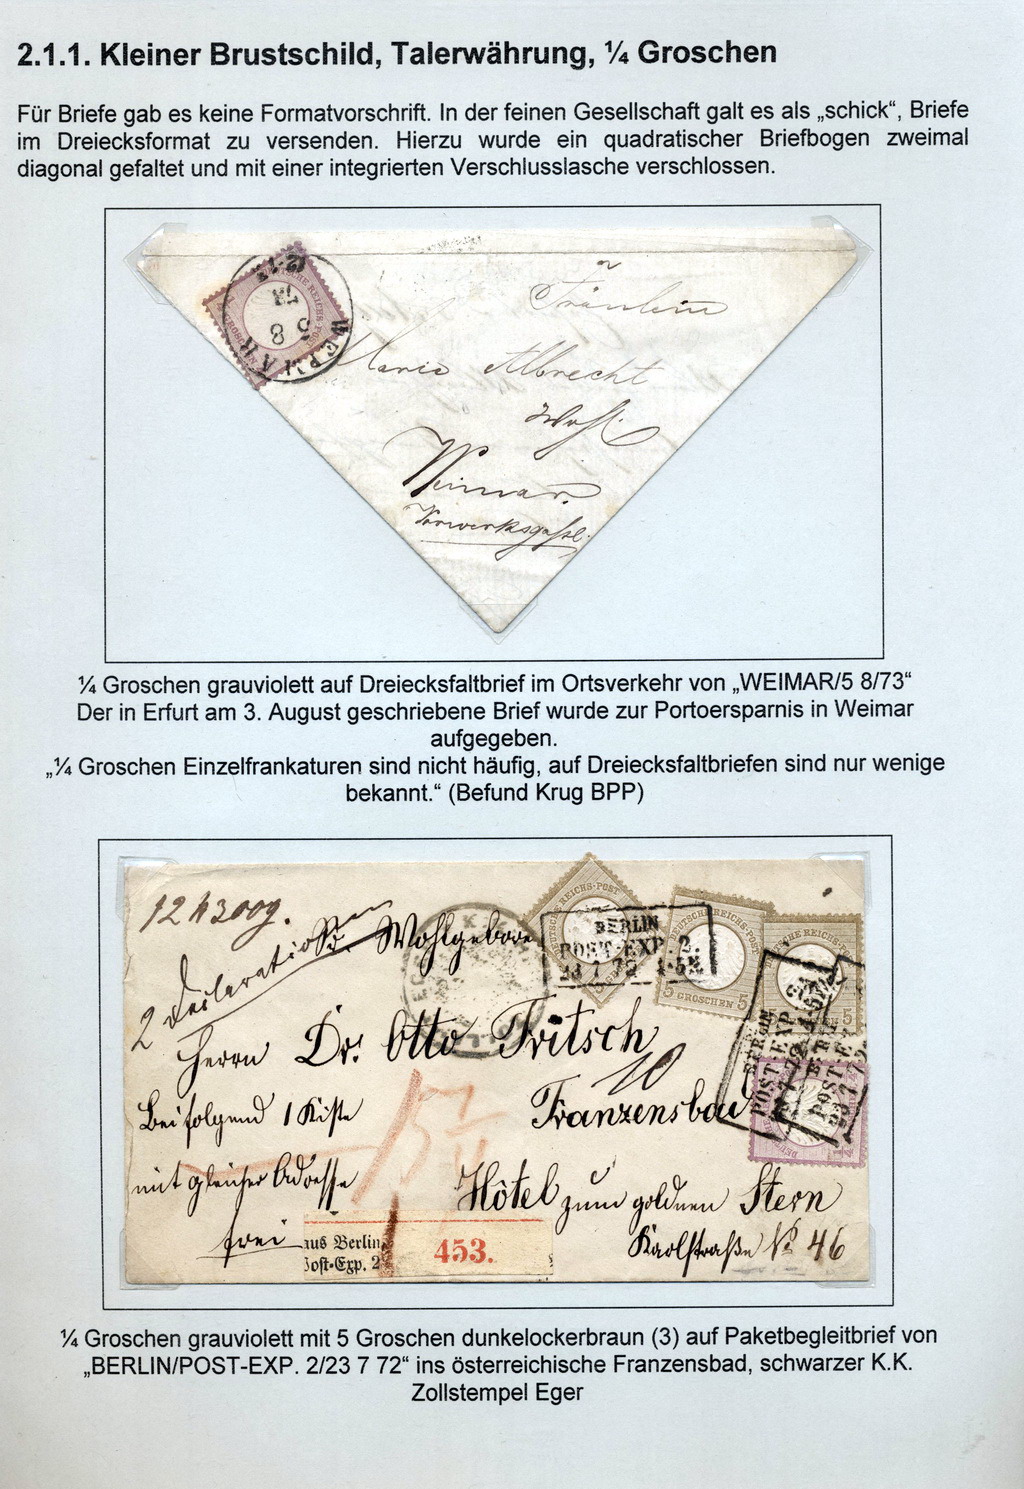 2.1.1. Kleiner Brustschild, Talerwährung, ¼ Groschen
Für Briefe gab es keine Formatvorschrift. In der feinen Gesellschaft galt es als „schick“, Briefe
im Dreiecksformat zu versenden. Hierzu wurde ein quadratischer Briefbogen zweimal
diagonal gefaltet und mit einer integrierten Verschlusslasche verschlossen.
WEIMAR
5 8
73
Fräulein
Marie Albrecht
Wohl.
Weimar.
Vorwerksgasse.
¼ Groschen grauviolett auf Dreiecksfaltbrief im Ortsverkehr von „WEIMAR/5 8/73“
Der in Erfurt am 3. August geschriebene Brief wurde zur Portoersparnis in Weimar
aufgegeben.
„¼ Groschen Einzelfrankaturen sind nicht häufig, auf Dreiecksfaltbriefen sind nur wenige
bekannt.“ (Befund Krug BPP)
DEUTSCHE REICHS-POST
5 GROSCHEN 5
BERLIN
POST-EXP. 2.
23 7 72
2 Declarationen
Wohlgeboren
Herrn Dr. Otto Fritsch
10
Beifolgend 1 Kiste
Franzensbad
mit gleicher Adresse
Hôtel zum goldnen Stern
frei
Karlstraße № 46
aus Berlin
Post-Exp. 2
453.
¼ Groschen grauviolett mit 5 Groschen dunkelockerbraun (3) auf Paketbegleitbrief von
„BERLIN/POST-EXP. 2/23 7 72“ ins österreichische Franzensbad, schwarzer K.K.
Zollstempel Eger